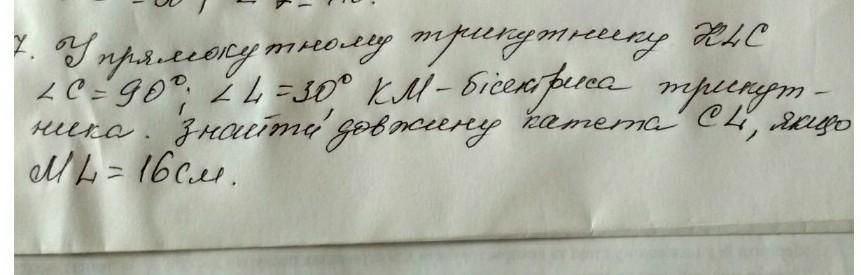 7. У прямокутному трикутнику KLC
∠C = 90°; ∠L = 30° KM - бісектриса трикут-
ника. Знайти довжину катета CL, якщо
ML = 16 см.